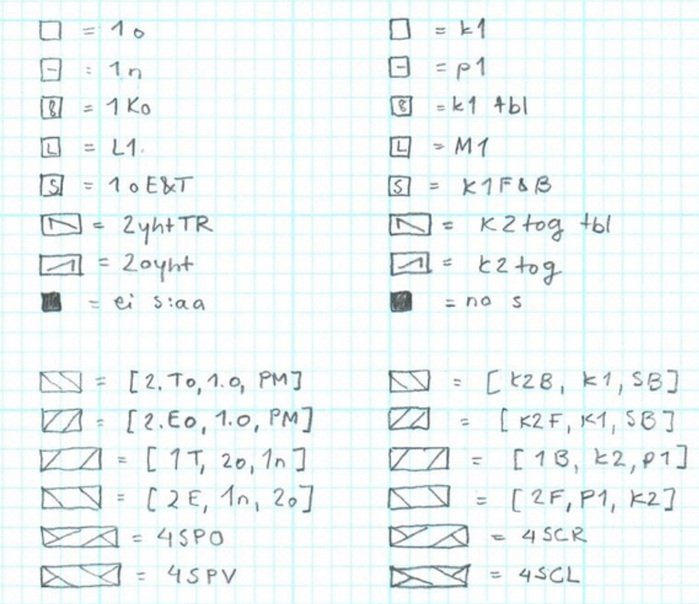 = 1o
= k1
: 1n
= p1
B = 1Ko
B = k1 tbl
L = L1.
L = M1
S = 1oE&T
S = K1F&B
= 2yhtTR
= K2tog tbl
= 2oyht
= k2tog
= ei s:aa
= no s
= [2.To, 1.o, PM]
= [K2B, K1, SB]
= [2.Eo, 1.o, PM]
= [K2F, K1, SB]
= [1T, 2o, 1n]
= [1B, K2, P1]
= [2E, 1n, 2o]
= [2F, P1, K2]
= 4SPO
= 4SCR
= 4SPV
= 4SCL